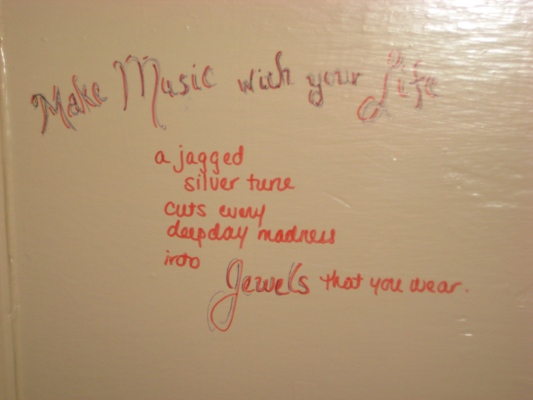 Make Music with your Life
a jagged
silver tune
cuts every
deepday madness
into
Jewels that you wear.